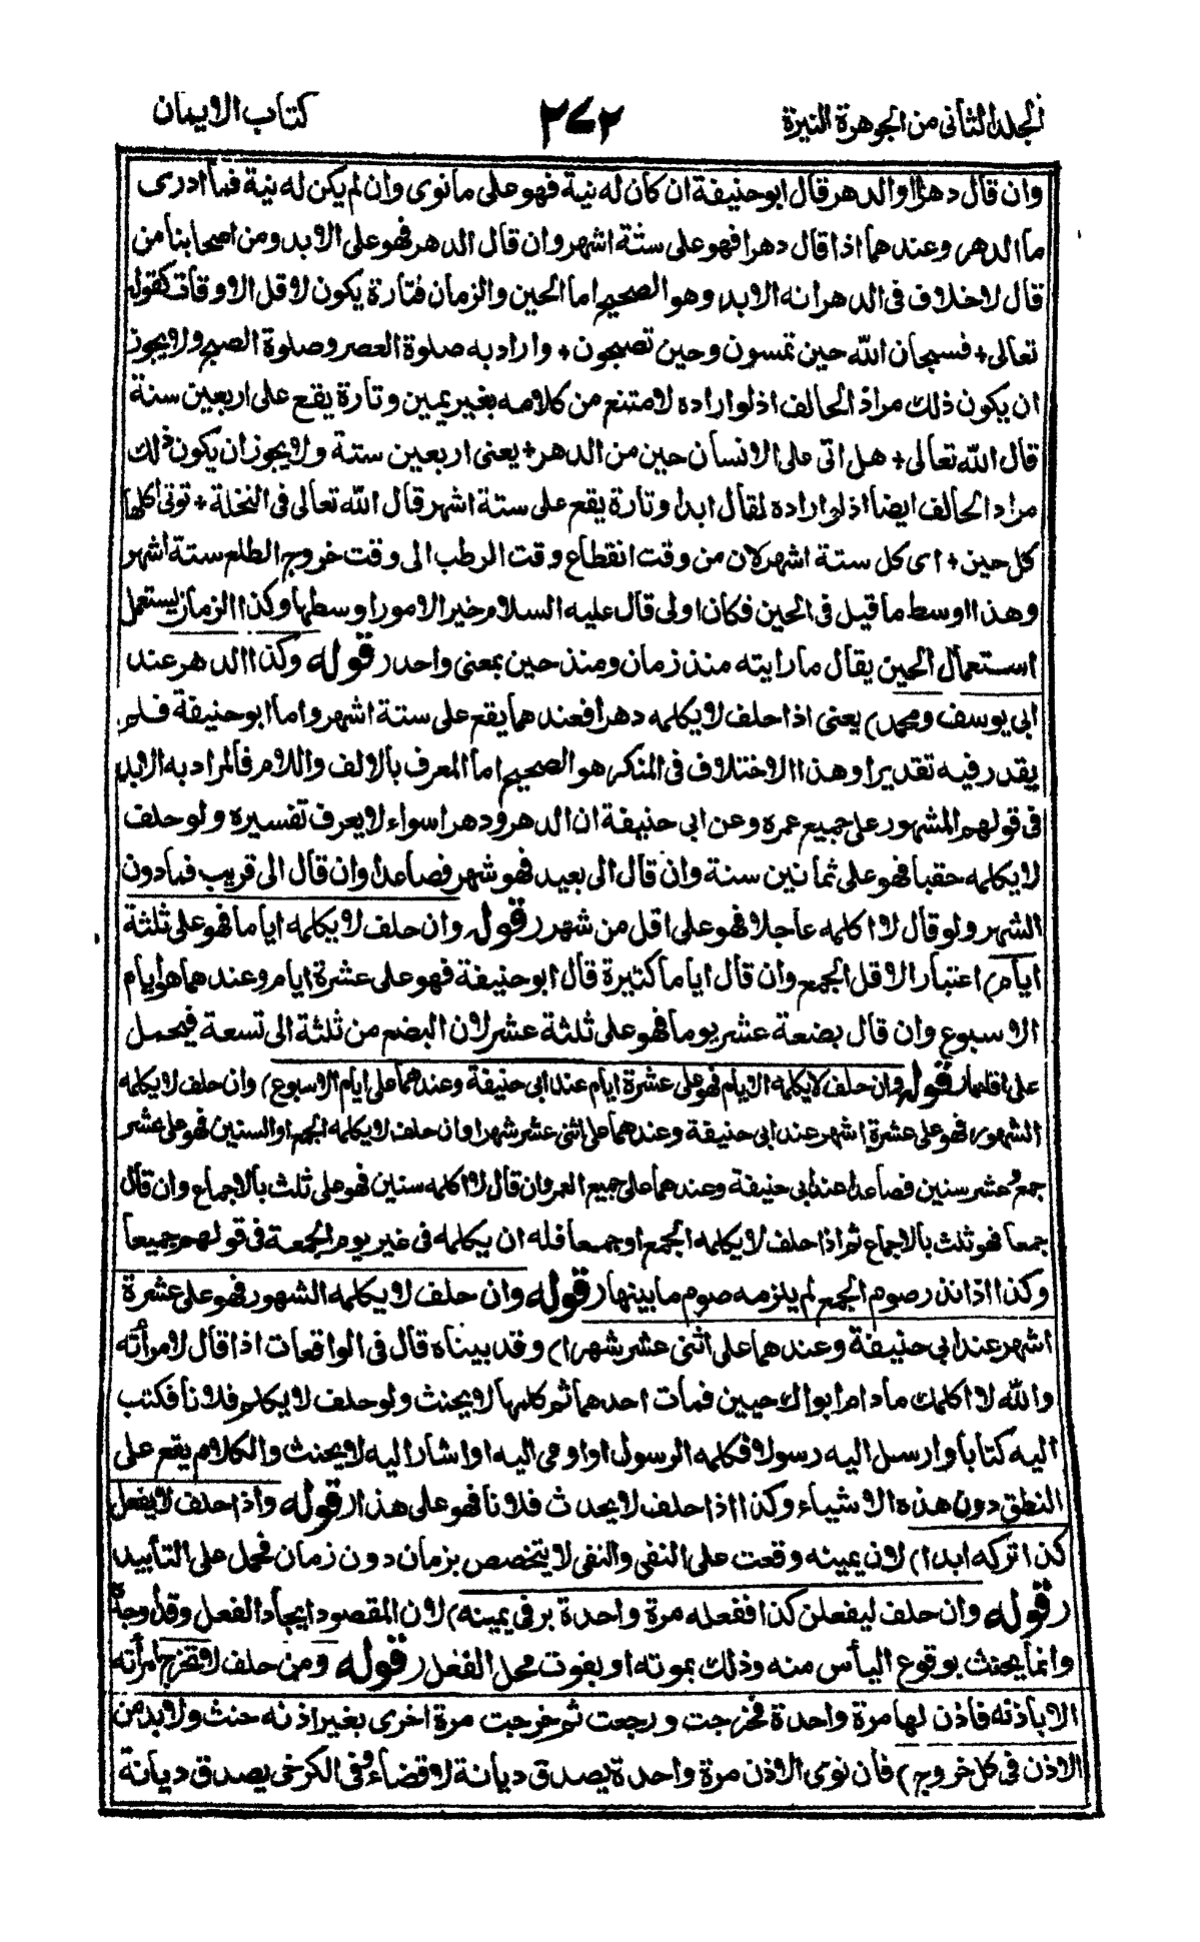 المجلد الثانى من الجوهرة النيرة
٢٧٢
كتاب الايمان
وان قال دهرا او الدهر قال ابو حنيفة ان كان له نية فهو على ما نوى وان لم يكن له نية فما ادرى
ما الدهر وعندهما اذا قال دهرا فهو على ستة اشهر وان قال الدهر فهو على الابد ومن اصحابنا من
قال لا خلاف فى الدهر انه الابد وهو الصحيح اما الحين والزمان فتارة يكون لاقل الاوقات كقوله
تعالى + فسبحان الله حين تمسون وحين تصبحون + واراد به صلوة العصر وصلوة الصبح ولا يجوز
ان يكون ذلك مراد الحالف اذ لو اراده لامتنع من كلامه بغير يمين وتارة يقع على اربعين سنة
قال الله تعالى + هل اتى على الانسان حين من الدهر + يعنى اربعين ستة ولا يجوز ان يكون ذلك
مراد الحالف ايضا اذ لو اراده لقال ابدا وتارة يقع على ستة اشهر قال الله تعالى فى النخلة + توتى اكلها
كل حين + اى كل ستة اشهر لان من وقت انقطاع وقت الرطب الى وقت خروج الطلع ستة اشهر
وهذا اوسط ما قيل فى الحين فكان اولى قال عليه السلام خير الامور اوسطها وكذا الزمان يستعمل
استعمال الحين يقال ما رايته منذ زمان ومنذ حين بمعنى واحد (قوله وكذا الدهر عند
ابى يوسف ومحمد) يعنى اذا حلف لا يكلمه دهرا فعندهما يقع على ستة اشهر واما ابو حنيفة فلم
يقدر فيه تقديرا وهذا الاختلاف فى المنكر هو الصحيح اما المعرف بالالف واللام فالمراد به الابد
فى قولهم المشهور على جميع عمره وعن ابى حنيفة ان الدهر ودهرا سواء لا يعرف تفسيره ولو حلف
لا يكلمه حقبا فهو على ثمانين سنة وان قال الى بعيد فهو شهر فصاعدا وان قال الى قريب فما دون
الشهر ولو قال لا اكلمه عاجلا فهو على اقل من شهر (قوله وان حلف لا يكلمه اياما فهو على ثلثة
ايام) اعتبار الاقل الجمع وان قال اياما كثيرة قال ابو حنيفة فهو على عشرة ايام وعندهما هو ايام
الاسبوع وان قال بضعة عشر يوما فهو على ثلثة عشر لان البضع من ثلثة الى تسعة فيحمل
على اقلها (قوله وان حلف لا يكلمه الايام فهو على عشرة ايام عند ابى حنيفة وعندهما على ايام الاسبوع) وان حلف لا يكلمه
الشهور فهو على عشرة اشهر عند ابى حنيفة وعندهما على اثنى عشر شهرا وان حلف لا يكلمه الجمع او السنين فهو على عشر
جمع وعشر سنين فصاعدا عند ابى حنيفة وعندهما على جميع العمر وان قال لا اكلمه سنين فهو على ثلث بالاجماع وان قال
جمعا فهو ثلث بالاجماع ثم اذا حلف لا يكلمه الجمع او جمعا فله ان يكلمه فى غير يوم الجمعة فى قولهم جميعا
وكذا اذا نذر صوم الجمع لم يلزمه صوم ما بينها (قوله وان حلف لا يكلمه الشهور فهو على عشرة
اشهر عند ابى حنيفة وعندهما على اثنى عشر شهرا) وقد بيناه قال فى الواقعات اذا قال لامرأته
والله لا اكلمك ما دام ابواك حيين فمات احدهما ثم كلمها لا يحنث ولو حلف لا يكلم فلانا فكتب
اليه كتابا وارسل اليه رسولا فكلمه الرسول او اومى اليه او اشار اليه لا يحنث والكلام يقع على
النطق دون هذه الاشياء وكذا اذا حلف لا يحدث فلانا فهو على هذا (قوله واذا حلف لا يفعل
كذا تركه ابدا) لان يمينه وقعت على النفى والنفى لا يتخصص بزمان دون زمان فحمل على التأبيد
(قوله وان حلف ليفعلن كذا ففعله مرة واحدة بر فى يمينه) لان المقصود ايجاد الفعل وقد وجد
وانما يحنث بوقوع اليأس منه وذلك بموته او بفوت محل الفعل (قوله ومن حلف لا تخرج امرأته
الا باذنه فاذن لها مرة واحدة فخرجت ورجعت ثم خرجت مرة اخرى بغير اذنه حنث ولا بد من
الاذن فى كل خروج) فان نوى الاذن مرة واحدة يصدق ديانة لا قضاء وفى الكرخى يصدق ديانة